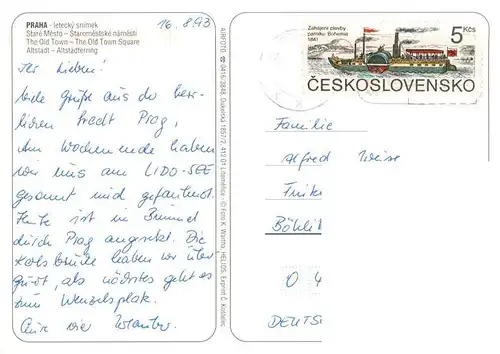 PRAHA - letecký snímek
Staré Město – Staroměstské náměstí
The Old Town – The Old Town Square
Altstadt – Altstädterring
16.8.93
Ihr Lieben!
viele Grüße aus der herr-
lichen Stadt Prag,
Am Wochenende haben
wir uns am LIDO-SEE
gesonnt und gefaulenzt.
Heute ist ein Bummel
durch Prag angesetzt. Die
Karlsbrücke haben wir über
als nächstes geht es
zum Wenzelsplatz.
Eure vier
AIRFOTO ☎ 0416/3848, Dukelská 1857/2, 412 01 Litoměřice - © Foto K. Wurm, HELIOS, Export Č. Kostelec
Zahájení plavby
parníku Bohemia
1841
5 Kčs
ČESKOSLOVENSKO
Familie
Alfred Weise
Böhli
0 4
DEUTS